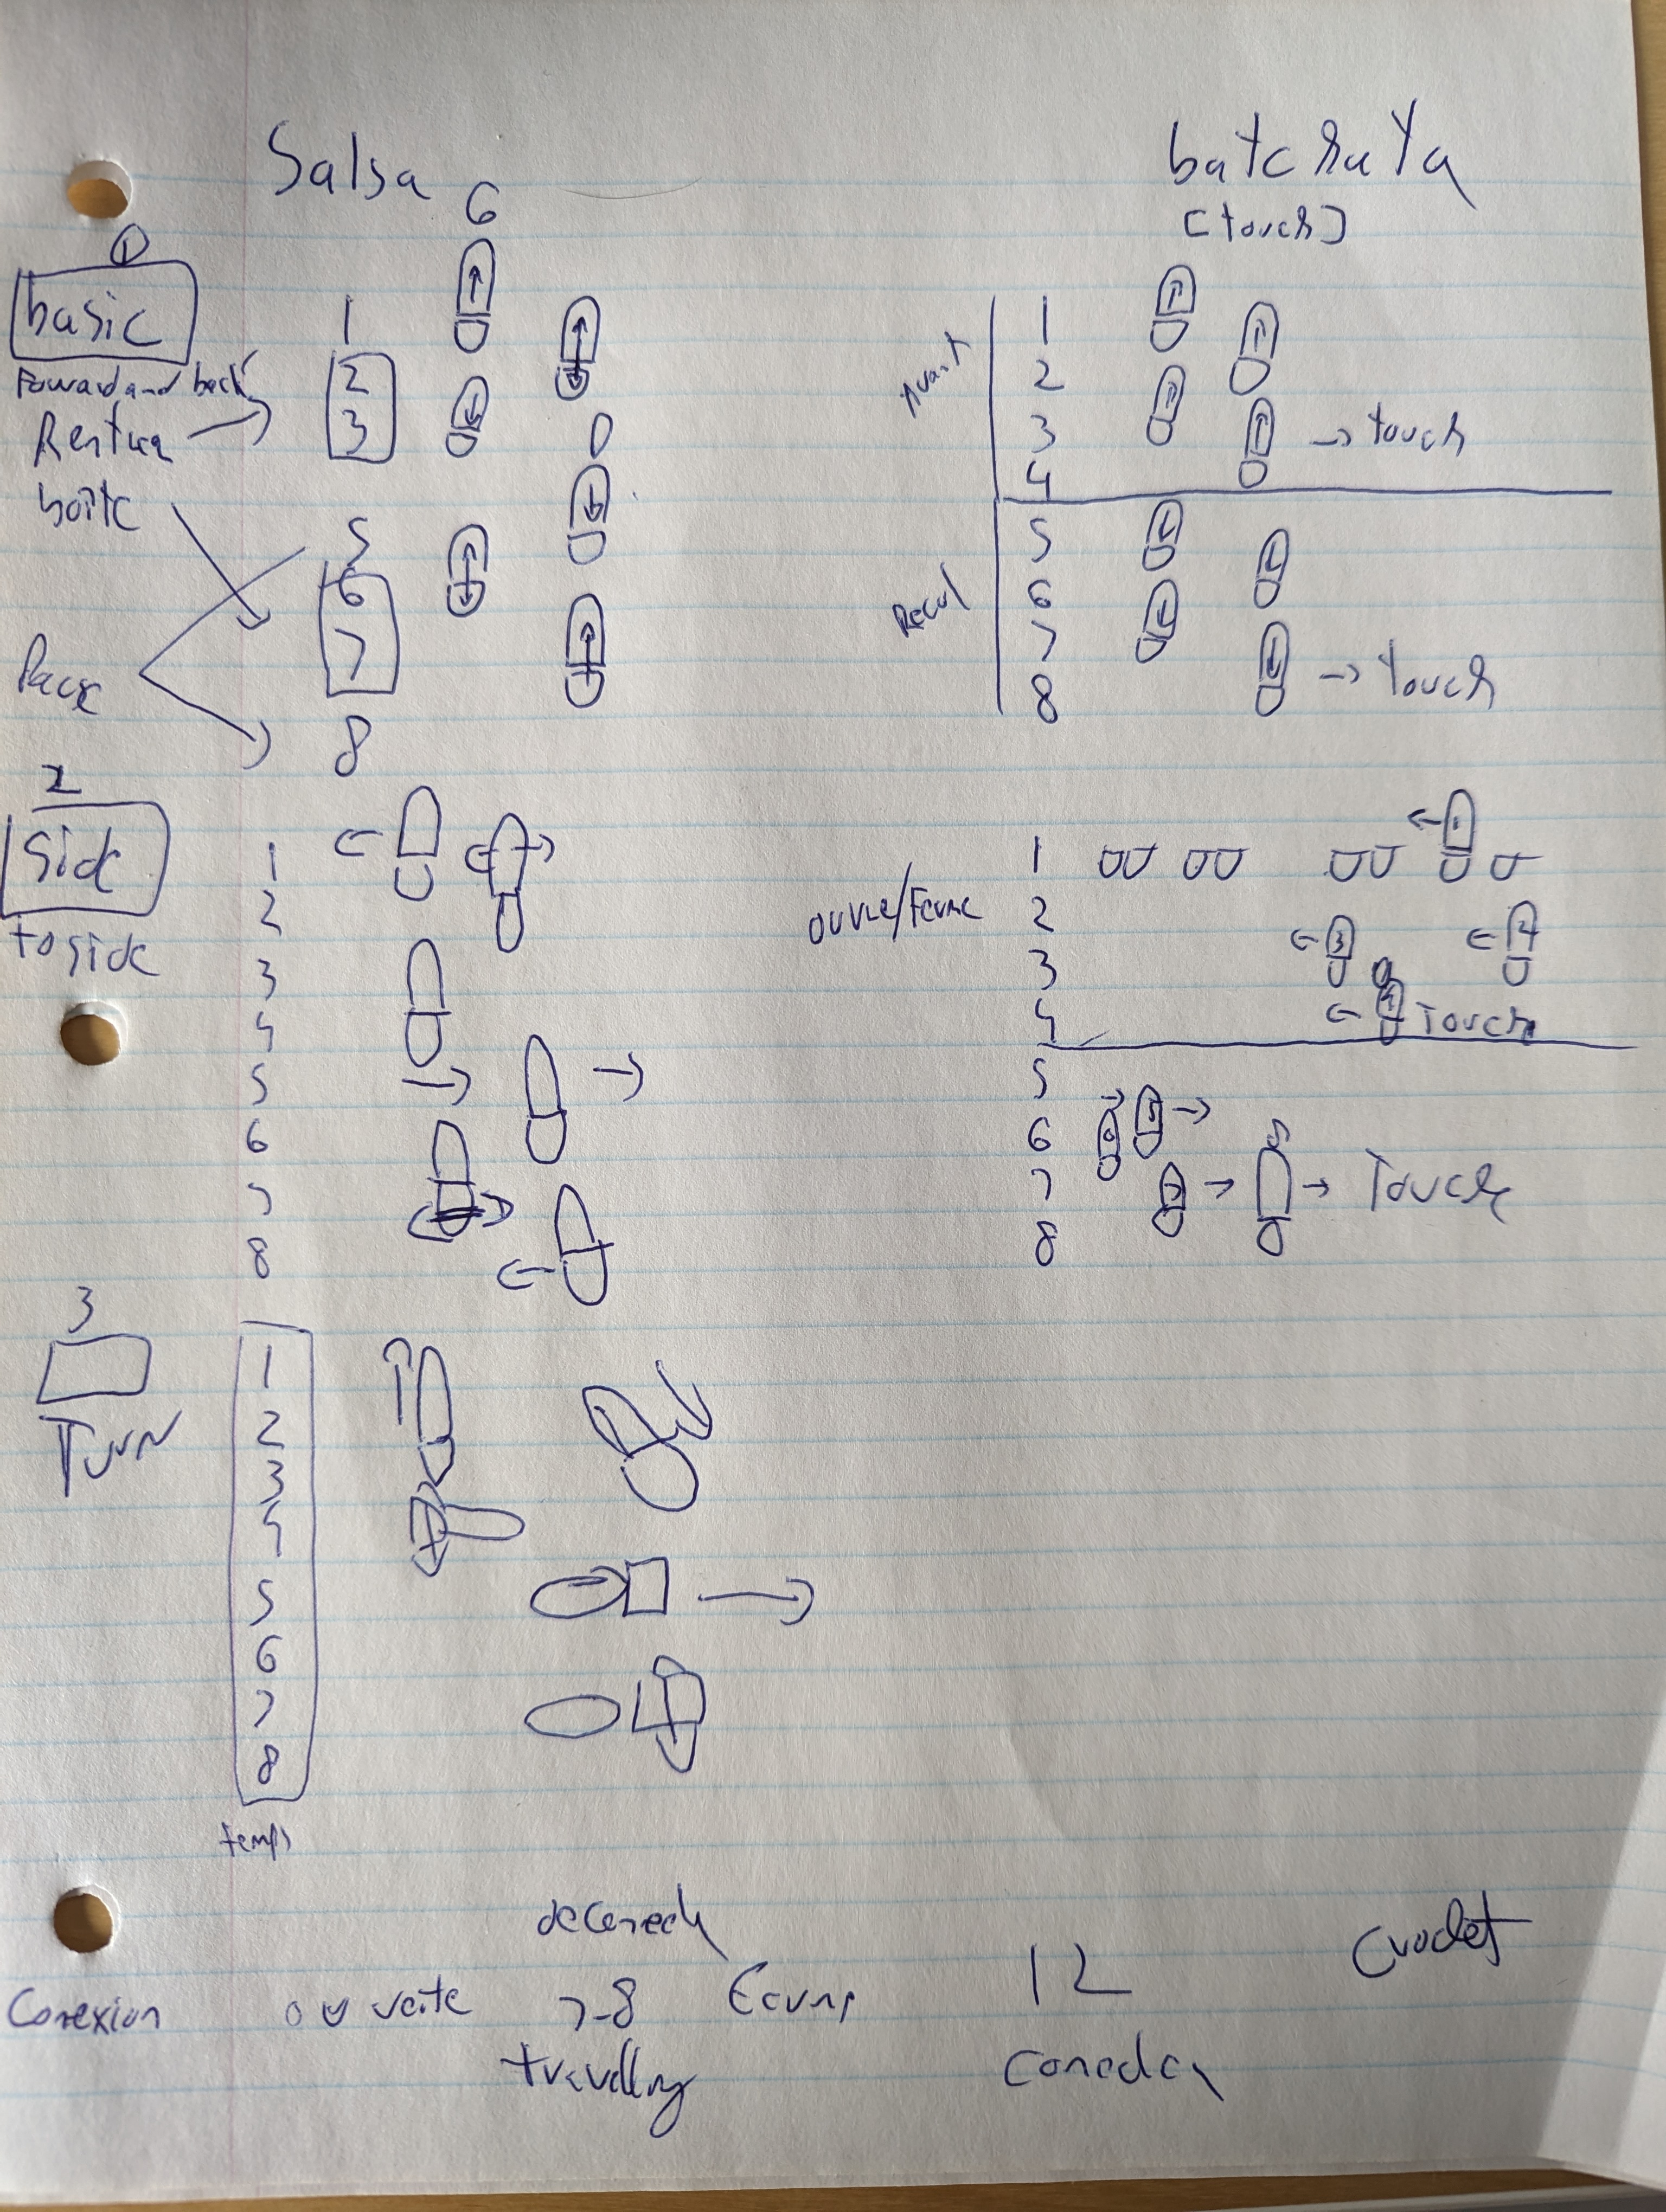 Salsa
G
D
batchata
[touch]
1
basic
Foward and back
Rentrer
boîte
Pause
1
2
3
5
6
7
8
Avant
1
2
3 → touch
4
Recul
5
6
7
8 → touch
2
Side
to side
1
2
3
4
5
6
7
8
ouvre/Ferme
1
2
3
4 Touch
5
6
7
8
Touch
3
Turn
1
2
3
4
5
6
7
8
temps
Conexion
ouverte
7-8
travelling
12